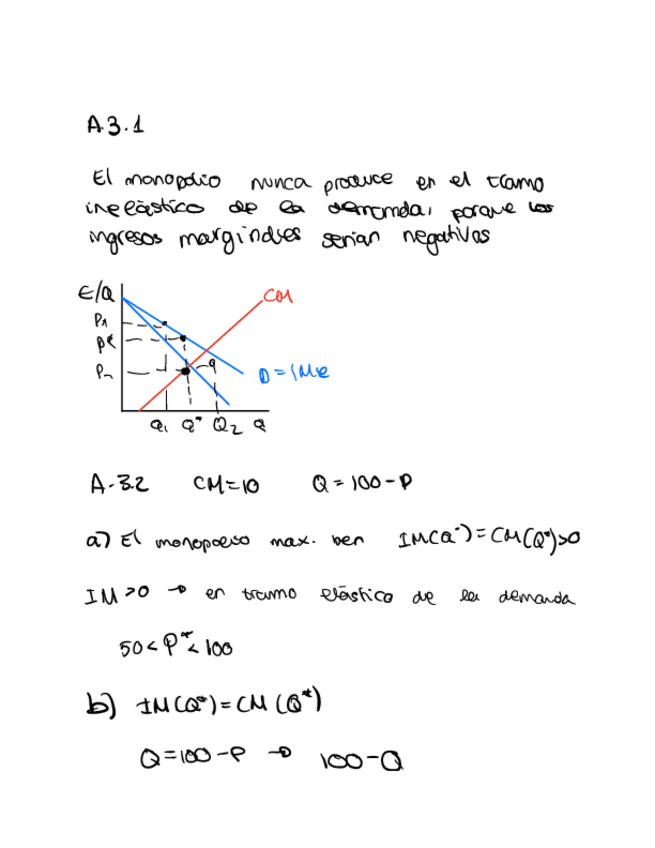 A.3.1
El monopolio nunca produce en el tramo
inelástico de la demanda, porque los
ingresos marginales serian negativos
€/Q
CM
P1
P*
P2
D = IMe
Q1 Q* Q2 Q
A-3.2 CM=10 Q = 100-P
a) El monopolio max. ben IM(Q*)=CM(Q*)>0
IM>0 → en tramo elástico de la demanda
50 < P* < 100
b) IM(Q*) = CM(Q*)
Q=100-P → 100-Q